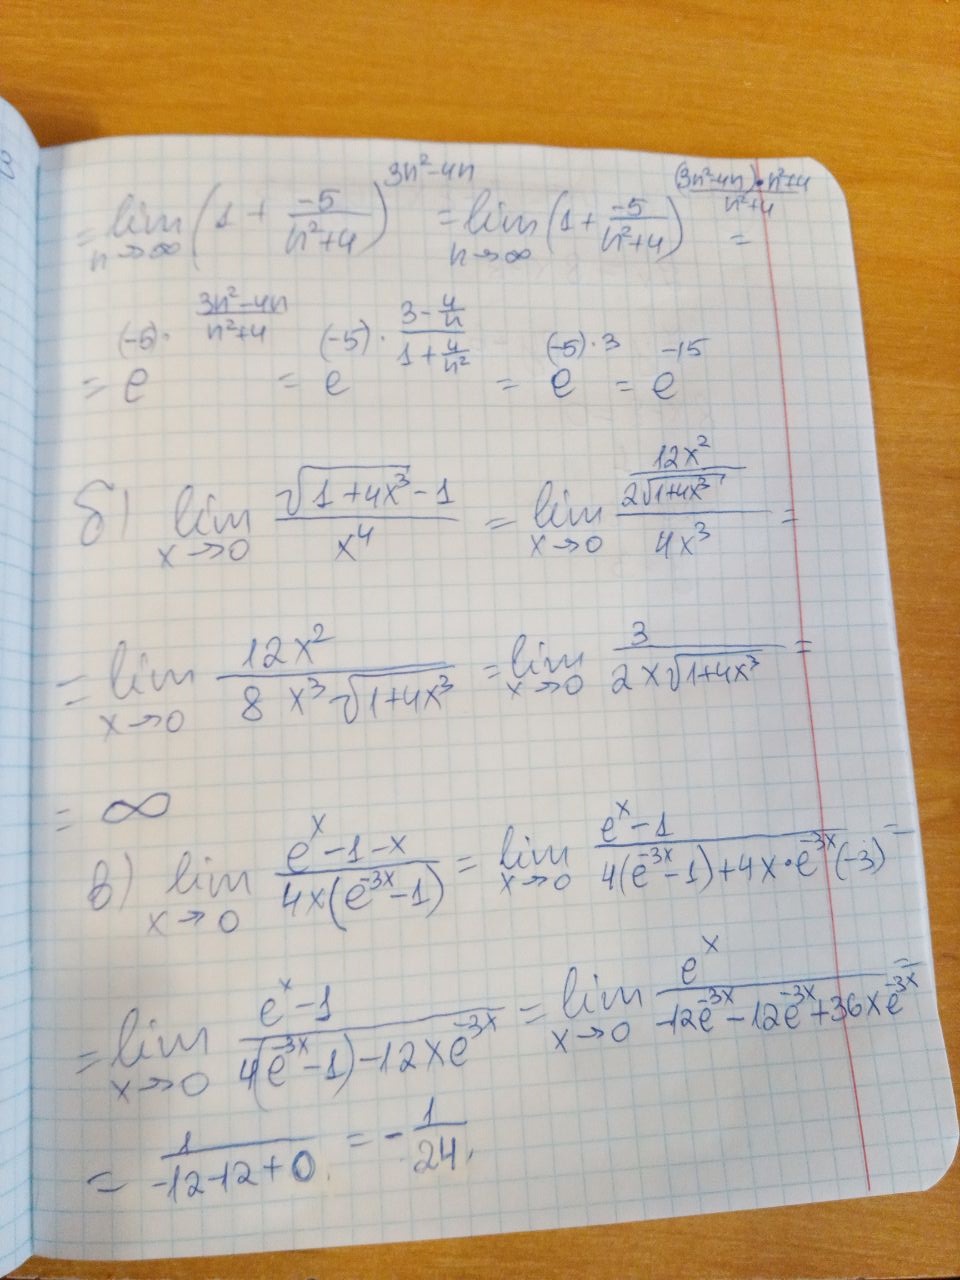 3
= lim_{n→∞} (1 + \frac{-5}{n²+4})^{3n²-4n} = lim_{n→∞} (1 + \frac{-5}{n²+4})^{\frac{(3n²-4n)·n²+4}{n²+4}} =
= e^{(-5)·\frac{3n²-4n}{n²+4}} = e^{(-5)·\frac{3-\frac{4}{n}}{1+\frac{4}{n²}}} = e^{(-5)·3} = e^{-15}
б) lim_{x→0} \frac{√(1+4x³)-1}{x⁴} = lim_{x→0} \frac{\frac{12x²}{2√(1+4x³)}}{4x³} =
= lim_{x→0} \frac{12x²}{8x³√(1+4x³)} = lim_{x→0} \frac{3}{2x√(1+4x³)} =
= ∞
в) lim_{x→0} \frac{e^x-1-x}{4x(e^{-3x}-1)} = lim_{x→0} \frac{e^x-1}{4(e^{-3x}-1)+4x·e^{-3x}(-3)} =
= lim_{x→0} \frac{e^x-1}{4(e^{-3x}-1)-12xe^{-3x}} = lim_{x→0} \frac{e^x}{-12e^{-3x}-12e^{-3x}+36xe^{-3x}} =
= \frac{1}{-12-12+0} = -\frac{1}{24}.